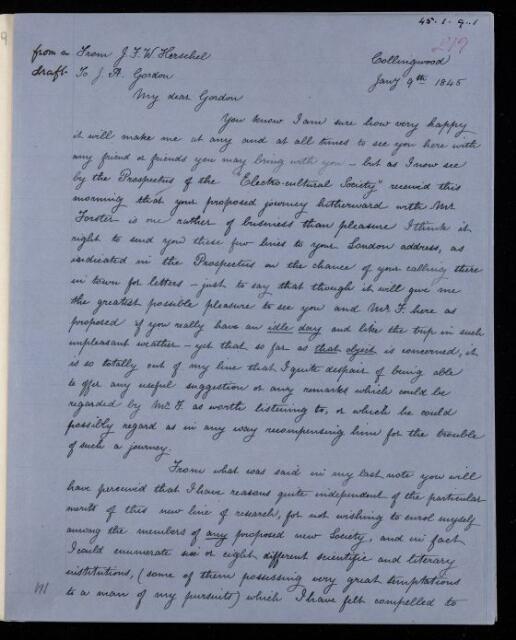 45.1.9.1
219
from a From J. F. W. Herschel
draft. To J. A. Gordon
Collingwood
Jany 9th 1845
My dear Gordon
You know I am sure how very happy
it will make me at any and at all times to see you here with
any friend or friends you may bring with you – but as I now see
by the Prospectus of the "Electro-cultural Society" received this
morning that your proposed journey hitherward with Mr.
Forster is one rather of business than pleasure I think it
right to send you these few lines to your London address, as
indicated in the Prospectus on the chance of your calling there
in town for letters – just to say that though it will give me
the greatest possible pleasure to see you and Mr F. here as
proposed if you really have an idle day and like the trip in such
unpleasant weather – yet that so far as that object is concerned, it
is so totally out of my line that I quite despair of being able
to offer any useful suggestion or any remarks which could be
regarded by Mr F. as worth listening to, or which he could
possibly regard as in any way recompensing him for the trouble
of such a journey.
From what was said in my last note you will
have perceived that I have reasons quite independent of the particular
merits of this new line of research, for not wishing to enrol myself
among the members of any proposed new Society, and in fact
I could enumerate six or eight different scientific and literary
institutions, (some of them possessing very great temptations
to a man of my pursuits) which I have felt compelled to